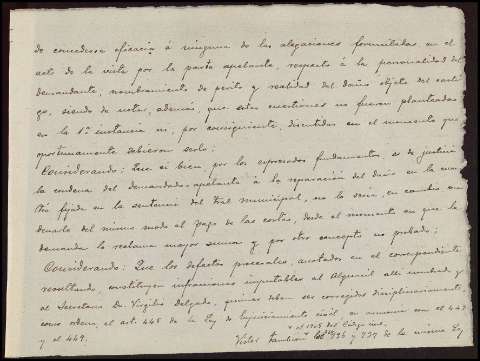 de concederse eficacia á ninguna de las alegaciones formuladas en el
acto de la vista por la parte apelante, respecto á la personalidad del
demandante, nombramiento de perito y realidad del daño objeto del casti-
go, siendo de notar, además, que estas cuestiones no fueron planteadas
en la 1ª instancia ni, por consiguiente, discutidas en el momento que
oportunamente debieron serlo:
Considerando: Que si bien, por los expresados fundamentos, es de justicia
la condena del demandado apelante á la reparación del daño en la cuan-
tía fijada en la sentencia del Tral municipal, no lo sería, en cambio con-
denarlo del mismo modo al pago de las costas, desde el momento en que la
demanda la reclama mayor suma y por otro concepto no probado;
Considerando: Que los defectos procesales, anotados en el correspondiente
resultando, constituyen infracciones imputables al Alguacil allí nombrado y
al Secretario Dn. Virgilio Delgado, quienes deben ser corregidos disciplinariamente,
como ordena el art. 445 de la Ley de Enjuiciamiento civil, en armonía con el 443
y el 449:
y el 1905 del Código civil,
Vistos también los 336 y 737 de la misma Ley